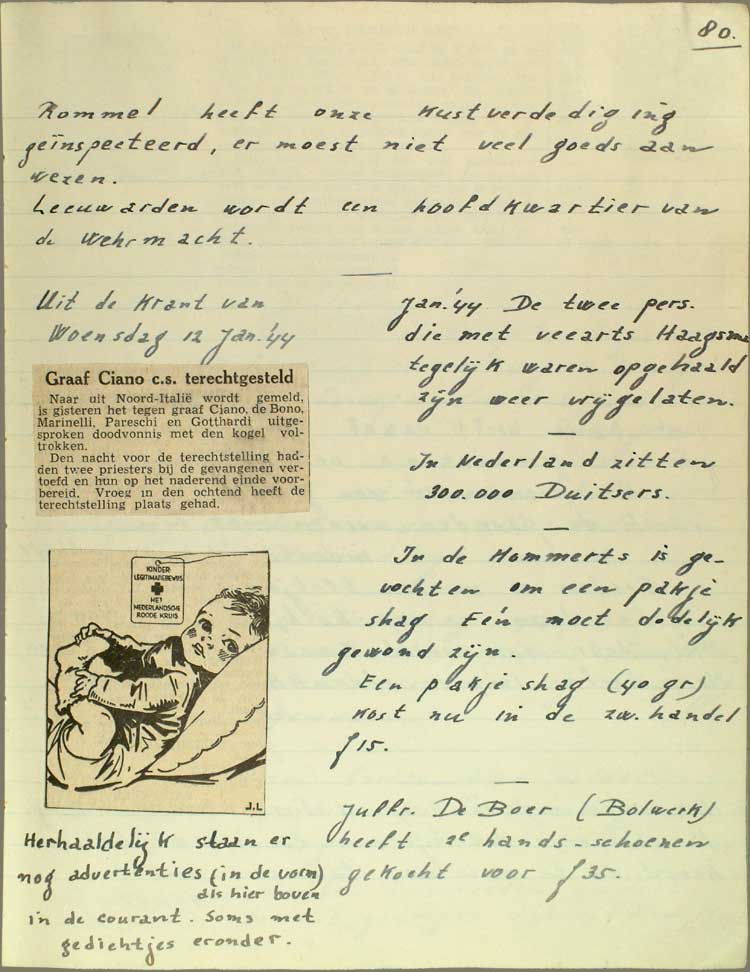 80.
Rommel heeft onze Kustverdediging
geïnspecteerd, er moest niet veel goeds aan
wezen.
Leeuwarden wordt een hoofdkwartier van
de Wehrmacht.
Uit de Krant van
Woensdag 12 Jan.'44
Graaf Ciano c.s. terechtgesteld
Naar uit Noord-Italië wordt gemeld,
is gisteren het tegen graaf Ciano, de Bono,
Marinelli, Pareschi en Gotthardi uitge-
sproken doodvonnis met den kogel vol-
trokken.
Den nacht voor de terechtstelling had-
den twee priesters bij de gevangenen ver-
toefd en hun op het naderend einde voor-
bereid. Vroeg in den ochtend heeft de
terechtstelling plaats gehad.
KINDER-
LEGITIMATIEBEWIJS
HET
NEDERLANDSCHE
ROODE KRUIS
J.L
Herhaaldelijk staan er
nog advertenties (in de vorm)
als hier boven
in de courant. Soms met
gedichtjes eronder.
Jan.'44 De twee pers.
die met veearts Haagsma
tegelijk waren opgehaald
zijn weer vrijgelaten.
In Nederland zitten
300.000 Duitsers.
In de Hommerts is ge-
vochten om een pakje
shag Eén moet dodelijk
gewond zijn.
Een pakje shag (40 gr)
kost nu in de zw. handel
f15.
Juffr. De Boer (Bolwerk)
heeft 2e hands-schoenen
gekocht voor f35.